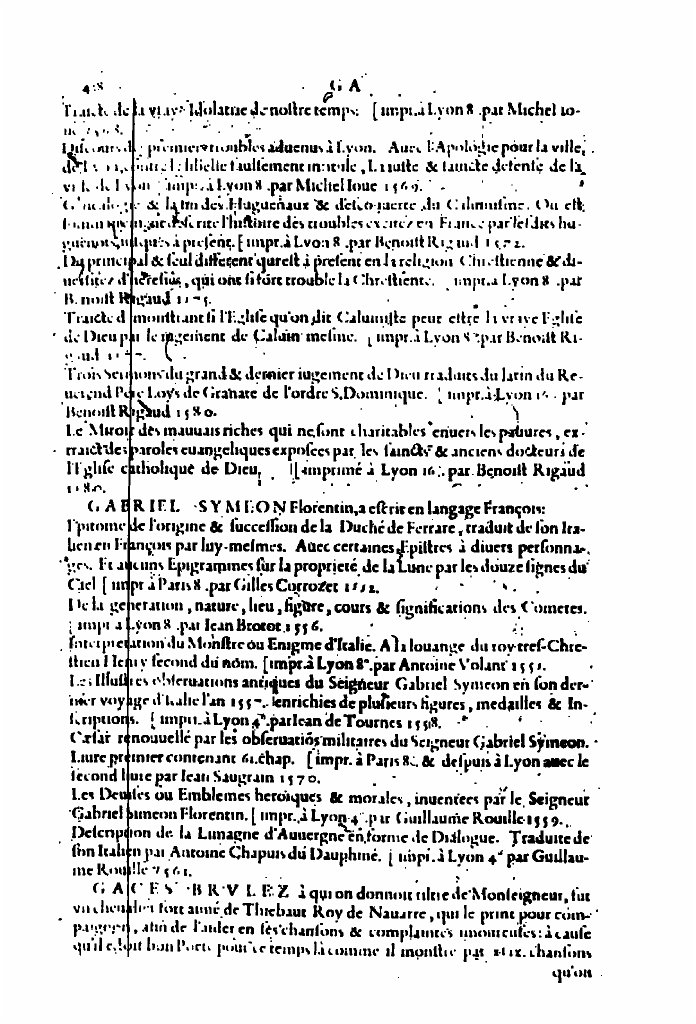 418 GA
Traicté de la vraye Idolatrie de nostre temps. [impr. à Lyon 8. par Michel Io-
ue 1568.
Discours des premiers troubles aduenus à Lyon. Auec l'Apologie pour la ville,
de Lyon, contre le libelle faulsement intitulé, La iuste & saincte defense de la
ville de Lyon [impr. à Lyon 8. par Michel Ioue 1569.
Genealogie & la fin des Huguenaux & descouuerte du Caluinisme. Ou est
sommairement descrite l'histoire des troubles excitez en France par lesdits hu-
guenots, iusques à present. [impr. à Lyon 8. par Benoist Rigaud 1572.
Du principal & seul different qui est à present en la religion Chrestienne & di-
uersitez d'heresies, qui ont si fort trouble la Chrestienté. impr. à Lyon 8. par
Benoist Rigaud
Traicté monstrant si l'Eglise qu'on dit Caluiniste peut estre la vraye Eglise
de Dieu par le iugement de Caluin mesme. [impr. à Lyon 8. par Benoist Ri-
gaud
Trois Sermons du grand & dernier iugement de Dieu traduits du latin du Re-
uerend Pere Loys de Granate de l'ordre S. Dominique. [impr. à Lyon 16. par
Benoist Rigaud 1580.
Le Miroir des mauuais riches qui ne sont charitables enuers les pauures, ex-
traict des paroles euangeliques exposees par les saincts & anciens docteurs de
l'Eglise catholique de Dieu, [imprimé à Lyon 16. par Benoist Rigaud
1580.
GABRIEL SYMEON Florentin, a escrit en langage François:
Epitome de l'origine & succession de la Duché de Ferrare, traduit de son Ita-
lien en François par luy-mesmes. Auec certaines Epistres à diuers personna-
ges. Et aucuns Epigrammes sur la proprieté de la Lune par les douze signes du
Ciel [impr. à Paris 8. par Gilles Corrozet
De la generation, nature, lieu, figure, cours & significations des Cometes.
[impr. à Lyon 8. par Iean Brotot 1556.
Interpretation du Monstre ou Enigme d'Italie. A la louange du roy tres-Chre-
stien Henry second du nom. [impr. à Lyon 8°. par Antoine Volant
Les Illustres obseruations antiques du Seigneur Gabriel Symeon en son der-
nier voyage d'Italie l'an 1557. enrichies de plusieurs figures, medailles & In-
scriptions. [impr. à Lyon 4°. par Iean de Tournes 1558.
Cæsar renouuellé par les obseruatiōs militaires du Seigneur Gabriel Symeon.
Liure premier contenant 61. chap. [impr. à Paris 8. & depuis à Lyon auec le
second liure par Iean Saugrain 1570.
Les Deuises ou Emblemes heroiques & morales, inuentees par le Seigneur
Gabriel Simeon Florentin. [impr. à Lyon 4°. par Guillaume Rouille 1559.
Description de la Limagne d'Auuergne en forme de Dialogue. Traduite de
son Italien par Antoine Chapuis du Dauphiné. [impr. à Lyon 4° par Guillau-
me Rouille 1561.
GACES BRVLEZ à qui on donnoit tiltre de Monseigneur, fut
vn cheualier fort aimé de Thiebaut Roy de Nauarre, qui le print pour com-
paignon, afin de l'aider en ses chansons & complaintes amoureuses: à cause
qu'il estoit bon Poete pour ce temps là comme il monstre par xlix. chansons
qu'on